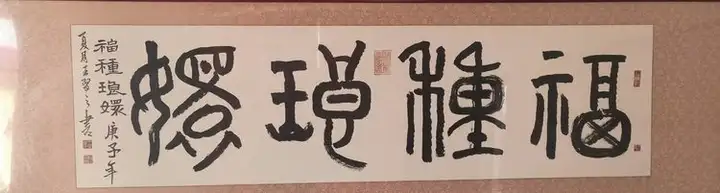 福種琅嬛
福種琅嬛庚子年
夏月之書